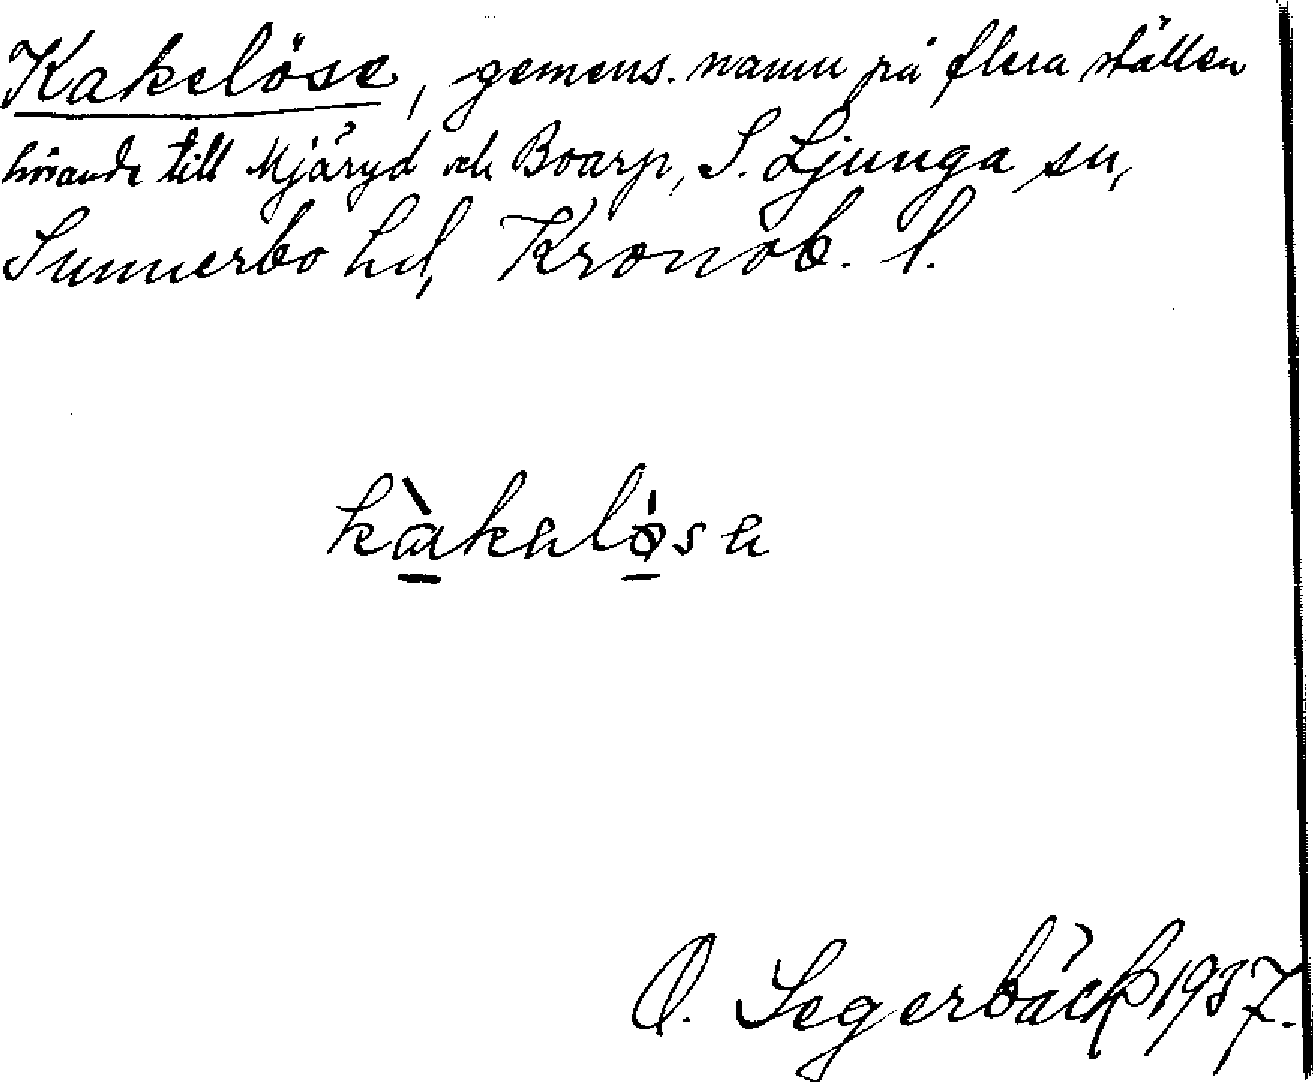 Kakelöse, gemens. namn på flera ställen
hörande till Mjäryd och Boarp, S. Ljunga sn,
Sunnerbo hd, Kronob. l.
kàkaløsa
O. Segerbäck 1937.